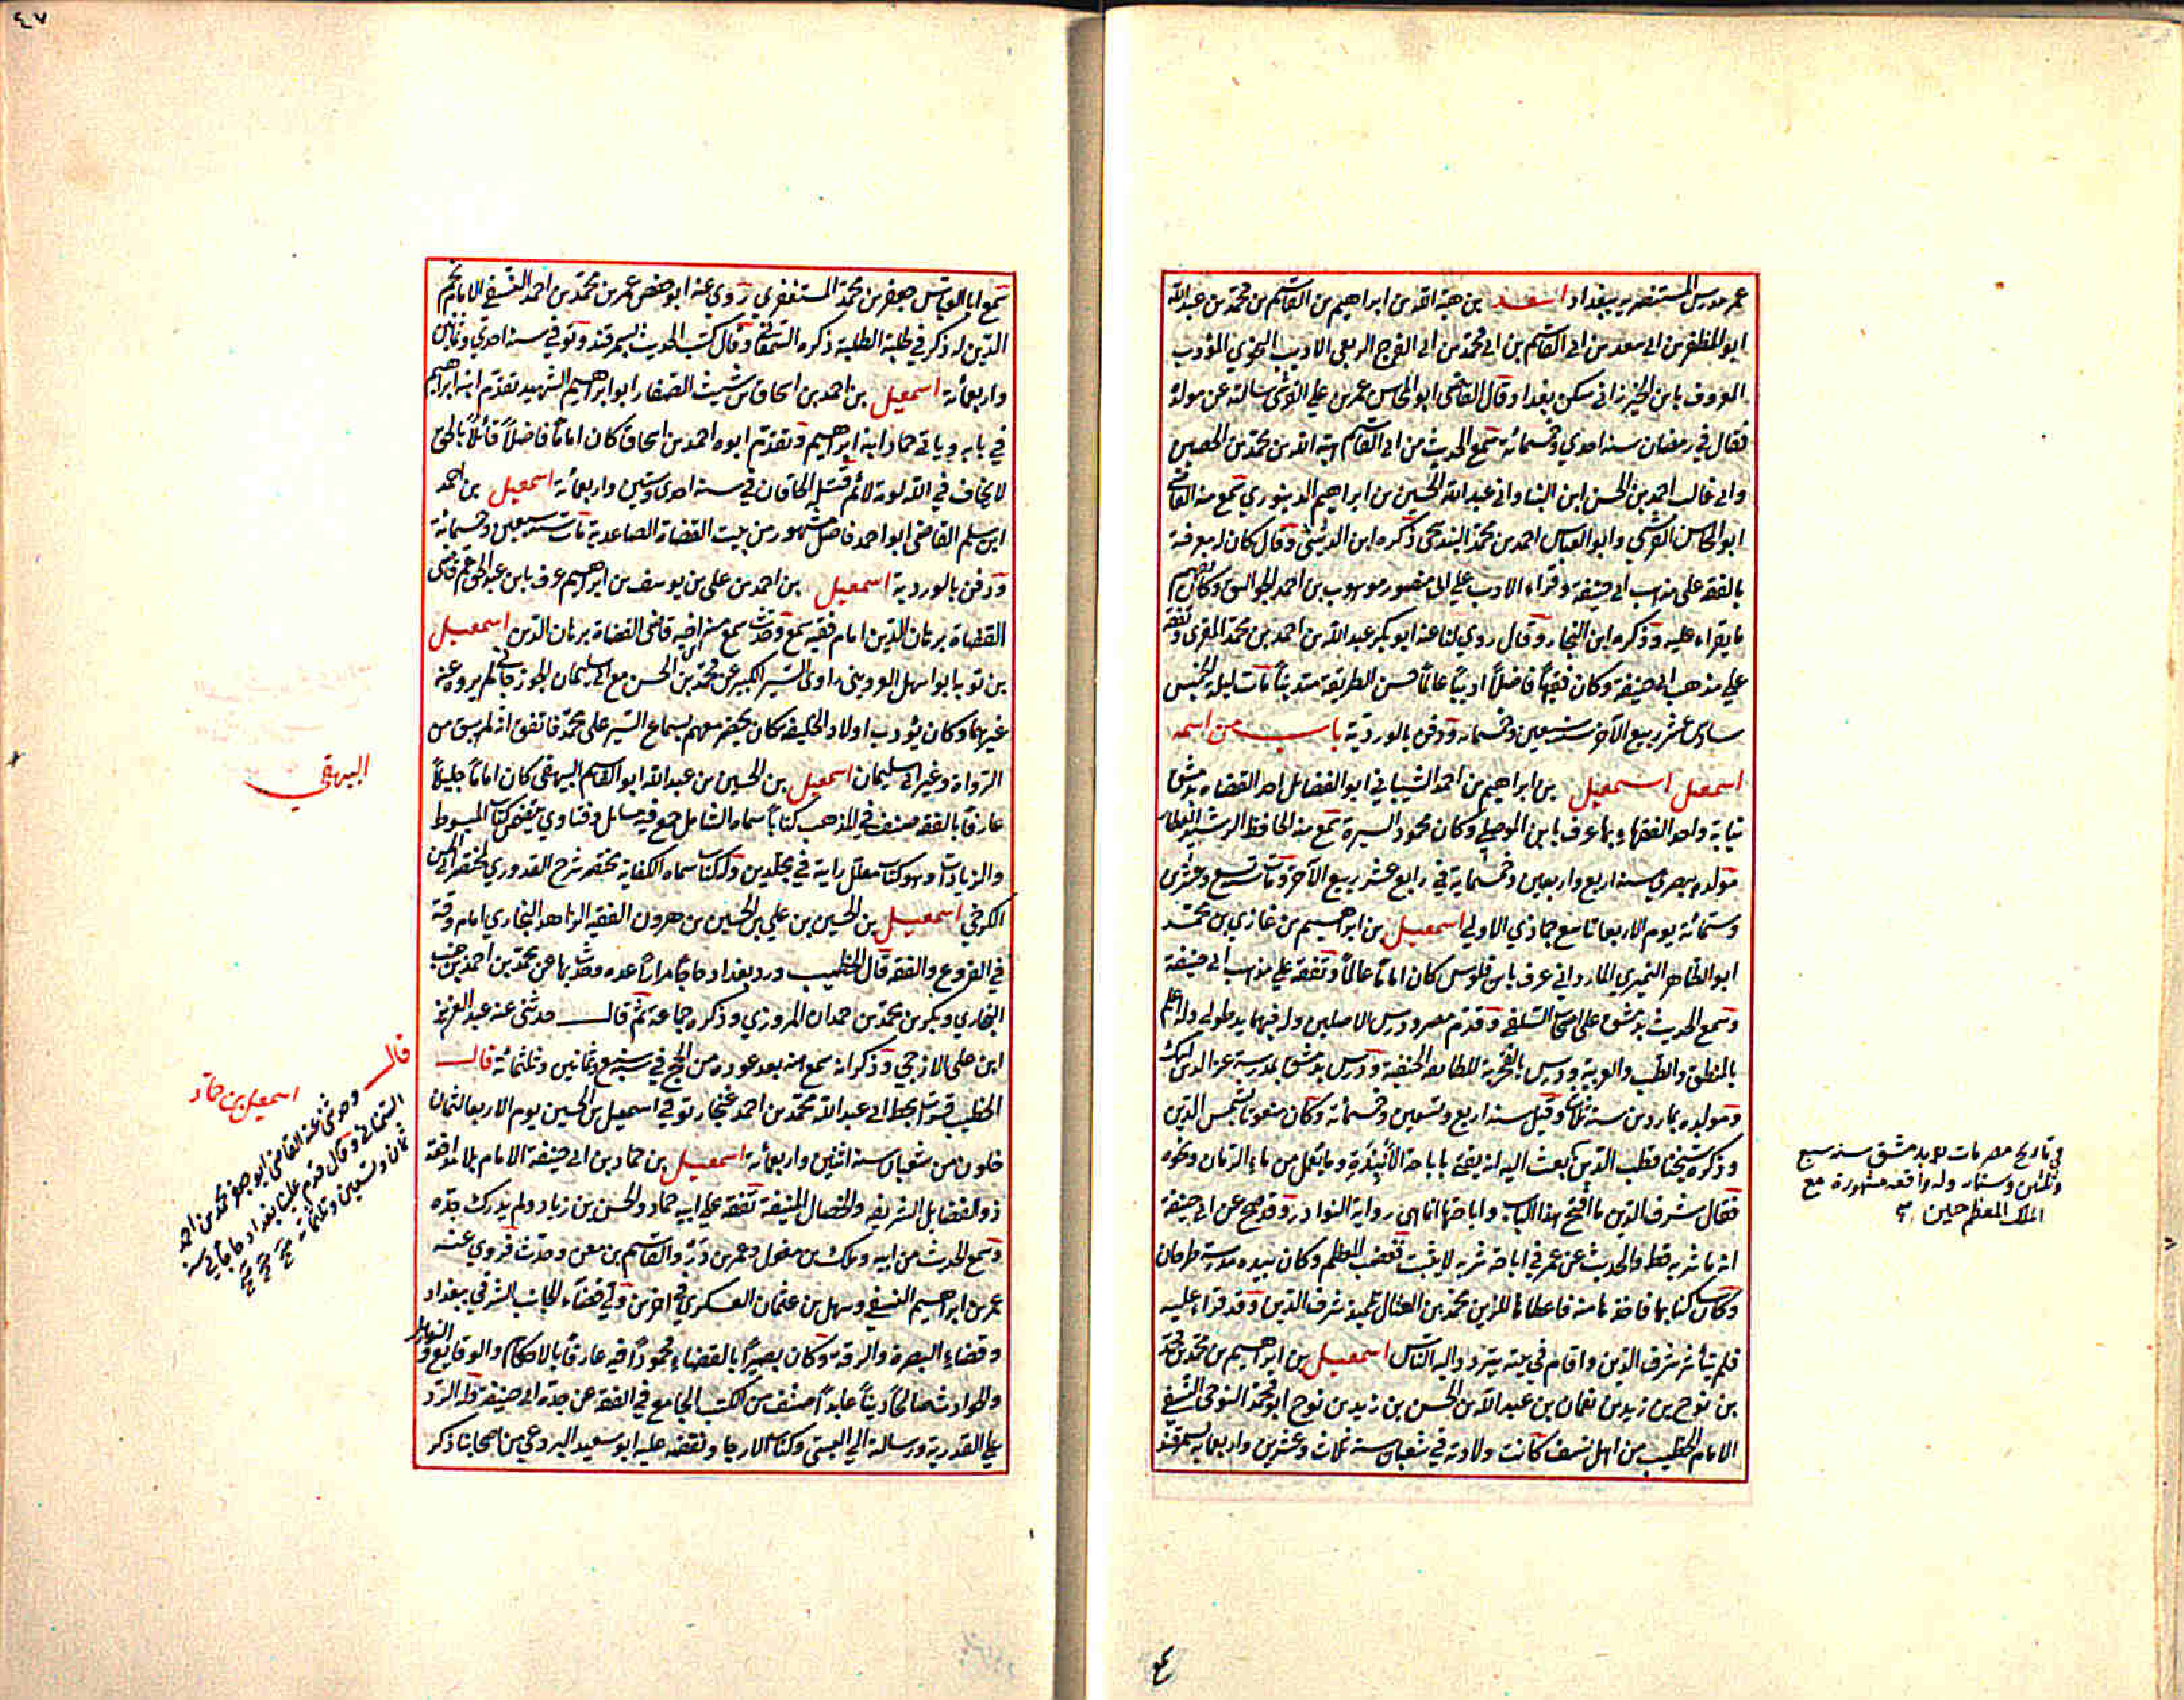 عمر مدرس المستنصرية ببغداد اسعد بن هبة الله بن ابراهيم بن القاسم بن محمد بن عبد الله
ابو المظفر بن ابى سعد بن ابى القاسم بن ابى محمد بن ابى الفرج الربعى الاديب النحوي المؤدب
المعروف بابن الخيزرانى سكن بغداد وقال القاضى ابو المحاسن عمر بن علي القرشى سالته عن مولده
فقال في رمضان سنة احدي وخمسمائة سمع الحديث من ابى القاسم هبة الله بن محمد بن الحصين
وابى غالب احمد بن الحسن ابن البنا وابى عبد الله الحسين بن ابراهيم الدينوري سمع منه القاضى
ابو المحاسن القرشي وابو العباس احمد بن محمد البندنيجى ذكره ابن الدبيثى وقال كان له معرفة
بالفقه على مذهب ابى حنيفة وقراء الادب علي ابى منصور موهوب بن احمد الجواليقى وكان يفهم
ما يقراء عليه وذكره ابن النجار وقال روي لنا عنه ابو بكر عبد الله بن احمد بن محمد المقرى وتفقه
علي مذهب ابى حنيفة وكان فقيها فاضلاً اديباً عالماً حسن الطريقة متديناً مات ليلة الخميس
سادس عشر ربيع الآخر سنة تسعين وخمسمائه ودفن بالوردية باب من اسمه
اسمعيل اسمعيل بن ابراهيم بن احمد الشيبانى ابو الفضائل احد القضاه بدمشق
نيابة واحد الفقهاء بها عرف بابن الموصلي وكان محمود السيرة سمع منه الحافظ الرشيد العطار
مولده ببصري سنة اربع واربعين وخمسماية في رابع عشر ربيع الآخر ومات سنة تسع وعشرين
وستمائة يوم الاربعا تاسع جمادي الاولي اسمعيل بن ابراهيم بن غازي بن محمد
ابو الطاهر النميري الماردانى عرف بابن فلوس كان اماماً عالماً وتفقه علي مذهب ابى حنيفة
وسمع الحديث بدمشق على اصحاب السلفى وقدم مصر ودرس الاصلين وله فيهما يد طولى وله علم
بالمنطق والطب والعربية ودرس بالفخرية للطايفة الحنيفة ودرس بدمشق بمدرسة عز الدين ايبك
ومولده بماردين سنة ثلاث وقيل سنة اربع وتسعين وخمسمائة وكان منعوتا بشمس الدين
وذكره شيخنا قطب الدين بعث اليه انه يفتى باباحة الأنبذة وما يعمل من ماء الرمان ونحوه
فقال شرف الدين ما افتح هذا الباب واباحتها انما هى رواية النوادر وقد صح عن ابى حنيفة
انه ما شربه قط والحديث عن عمر في اباحة شربه لا يثبت فغضب المعظم وكان بيده مدرسة طرخان
وكان يسكن بها فاخذها منه فاعطاها للزين محمد بن العتال تلميذ شرف الدين وقد قراء عليه
فلم يتأثر شرف الدين واقام في بيته يتردد اليه الناس اسمعيل بن ابراهيم بن محمد بن محمد
بن نوح بن زيد بن نعمان بن عبد الله بن الحسن بن زيد بن نوح ابو محمد النوحى النسفى
الامام الخطيب من اهل نسف كانت ولادته في شعبان سنة ثلاث وعشرين واربعمايه بسمرقند
في تاريخ مصر مات بدمشق سنة سبع
وثلثين وستمائة وله واقعه مشهورة مع
الملك المعظم حين
٤
٤٧
سمع ابا العباس جعفر بن محمد المستغفري روي عنه ابو حفص عمر بن محمد بن احمد النسفى الامام نجم
الدين له ذكر في طلبة الطلبة ذكره السمعانى وقال كتب الحديث بسمرقند وتوفي سنة احدي وثمانين
واربعمائة اسمعيل بن احمد بن اسحاق بن شيث الصفار ابو ابراهيم الشهيد تقدم ابنه ابراهيم
في بابه وياتى حماد ابنه ابراهيم وتقدم ابوه احمد بن اسحاق كان اماماً فاضلاً قائلاً بالحق
لا يخاف في الله لومة لائم قتله الخاقان في سنة احدي وستين واربعمائة اسمعيل بن احمد
ابن سلم القاضى ابو احمد فاضل مشهور من بيت القضاة الصاعدية مات سنة سبعين وخمسمائة
ودفن بالوردية اسمعيل بن احمد بن على بن يوسف بن ابراهيم عرف بابن عبد الحق عم قاضى
القضاة برهان الدين امام فقيه سمع وحدث سمع منه اخيه قاضى القضاة برهان الدين اسمعيل
بن توبه ابو سهل القزوينى راوي السير الكبير عن محمد بن الحسن مع ابى سليمان الجوزجانى لم يروه عنه
غيرهما وكان يؤدب اولاد الخليفة فكان يحضر معهم بسماع السير على محمد فاتفق انه لم يبق من
الرواة غيره وغير ابى سليمان اسمعيل بن الحسين بن عبد الله ابو القاسم البيهقى كان اماماً جليلاً
عارفاً بالفقه صنف في المذهب كتاباً سماه الشامل جمع فيه مسائل وفتاوي يتضمن كتاب المبسوط
والزيادات وهو كتاب معلل رايته في مجلدين وله كتاب سماه الكفاية مختصر شرح القدوري لمختصر ابى الحسن
الكرخي اسمعيل بن الحسين بن علي بن الحسين بن هرون الفقيه الزاهد البخاري امام وقته
في الفروع والفقه قال الخطيب ورد بغداد حاجاً مراراً عدة وحدث بها عن محمد بن احمد بن خنب
البخاري وبكر بن محمد بن حمدان المروزي وذكره جماعة ثم قال حدثنى عنه عبد العزيز
ابن على الازجي وذكر انه سمع منه بعد عوده من الحج في سنة سبع وثمانين وثلثمائة قال
الخطيب قرات بخط ابى عبد الله محمد بن احمد غنجار توفى اسمعيل بن الحسين يوم الاربعا لثمان
خلون من شعبان سنة اثنتين واربعمائة اسمعيل بن حماد بن ابى حنيفة الامام بلا مدافعة
ذو الفضايل الشريفه والخصال المنيفة تفقه علي ابيه حماد والحسن بن زياد ولم يدرك جده
وسمع الحديث من ابيه ومالك بن مغول وعمر بن ذر والقاسم بن معن وحدث فروي عنه
عمر بن ابراهيم النسفى وسهل بن عثمان العسكري في اخرين ولى قضاء الجانب الشرقي ببغداد
وقضاء البصرة والرقة وكان بصيراً بالقضاء محموداً فيه عارفاً بالاحكام والوقايع والنوازل
والحوادث صالحاً ديناً عابداً صنف من الكتب الجامع في الفقه عن جده ابى حنيفة وله الرد
علي القدرية ورسالة الي البستى وكتاب الارجا ونقضه عليه ابو سعيد البردعي من اصحابنا ذكر
البيهقي
اسمعيل بن حماد
قال وحدثنى عنه القاضى ابو جعفر محمد بن احمد
السمنانى وقال قدم علينا بغداد حاجا في سنة
ثمان وتسعين وثلثمائة صح صح صح